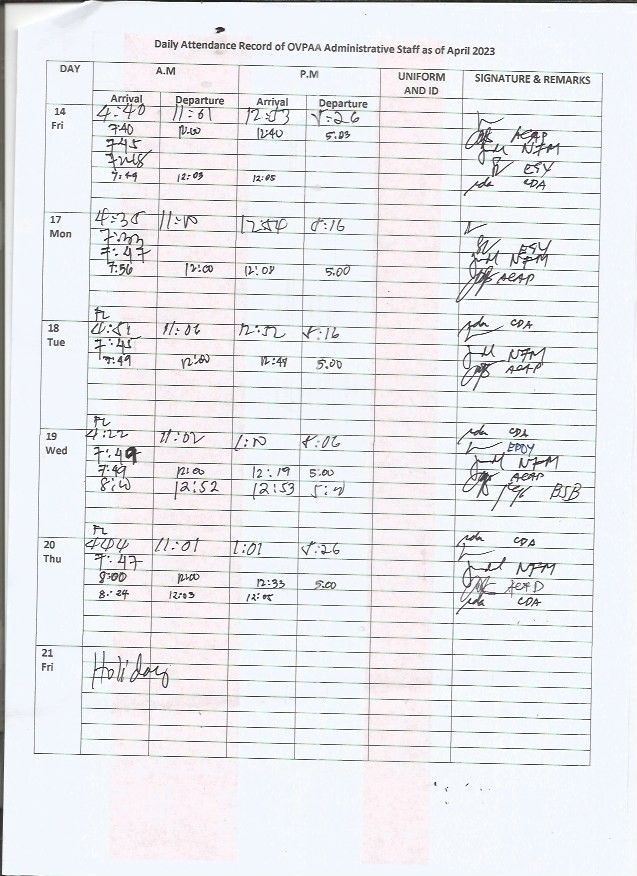 Daily Attendance Record of OVPAA Administrative Staff as of April 2023
DAY A.M P.M UNIFORM AND ID SIGNATURE & REMARKS
Arrival Departure Arrival Departure
14 Fri 4:40 11:01 12:53 5:26
7:40 12:00 12:40 5.03 ACAP
7:45 NFM
7:48 ESY
7:49 12:03 12:05 CDA
17 Mon 4:35 11:00 12:54 5:16
7:33 ESY
7:47 NFM
7:56 12:00 12:08 5.00 ACAP
FL CDA
18 Tue 4:51 11:06 12:52 5:16
7:45 NFM
7:49 12:00 12:49 5.00 ACAP
FL CDA
19 Wed 4:22 11:02 1:00 5:06 EDDY
7:49 NFM
7:49 12:00 12:19 5:00 ACAP
8:10 12:52 12:53 BSB
FL CDA
20 Thu 444 11:01 1:01 5:26
7:47 NFM
8:00 12:00 12:33 5:00
8:24 12:03 12:05 CDA
21 Fri Holiday